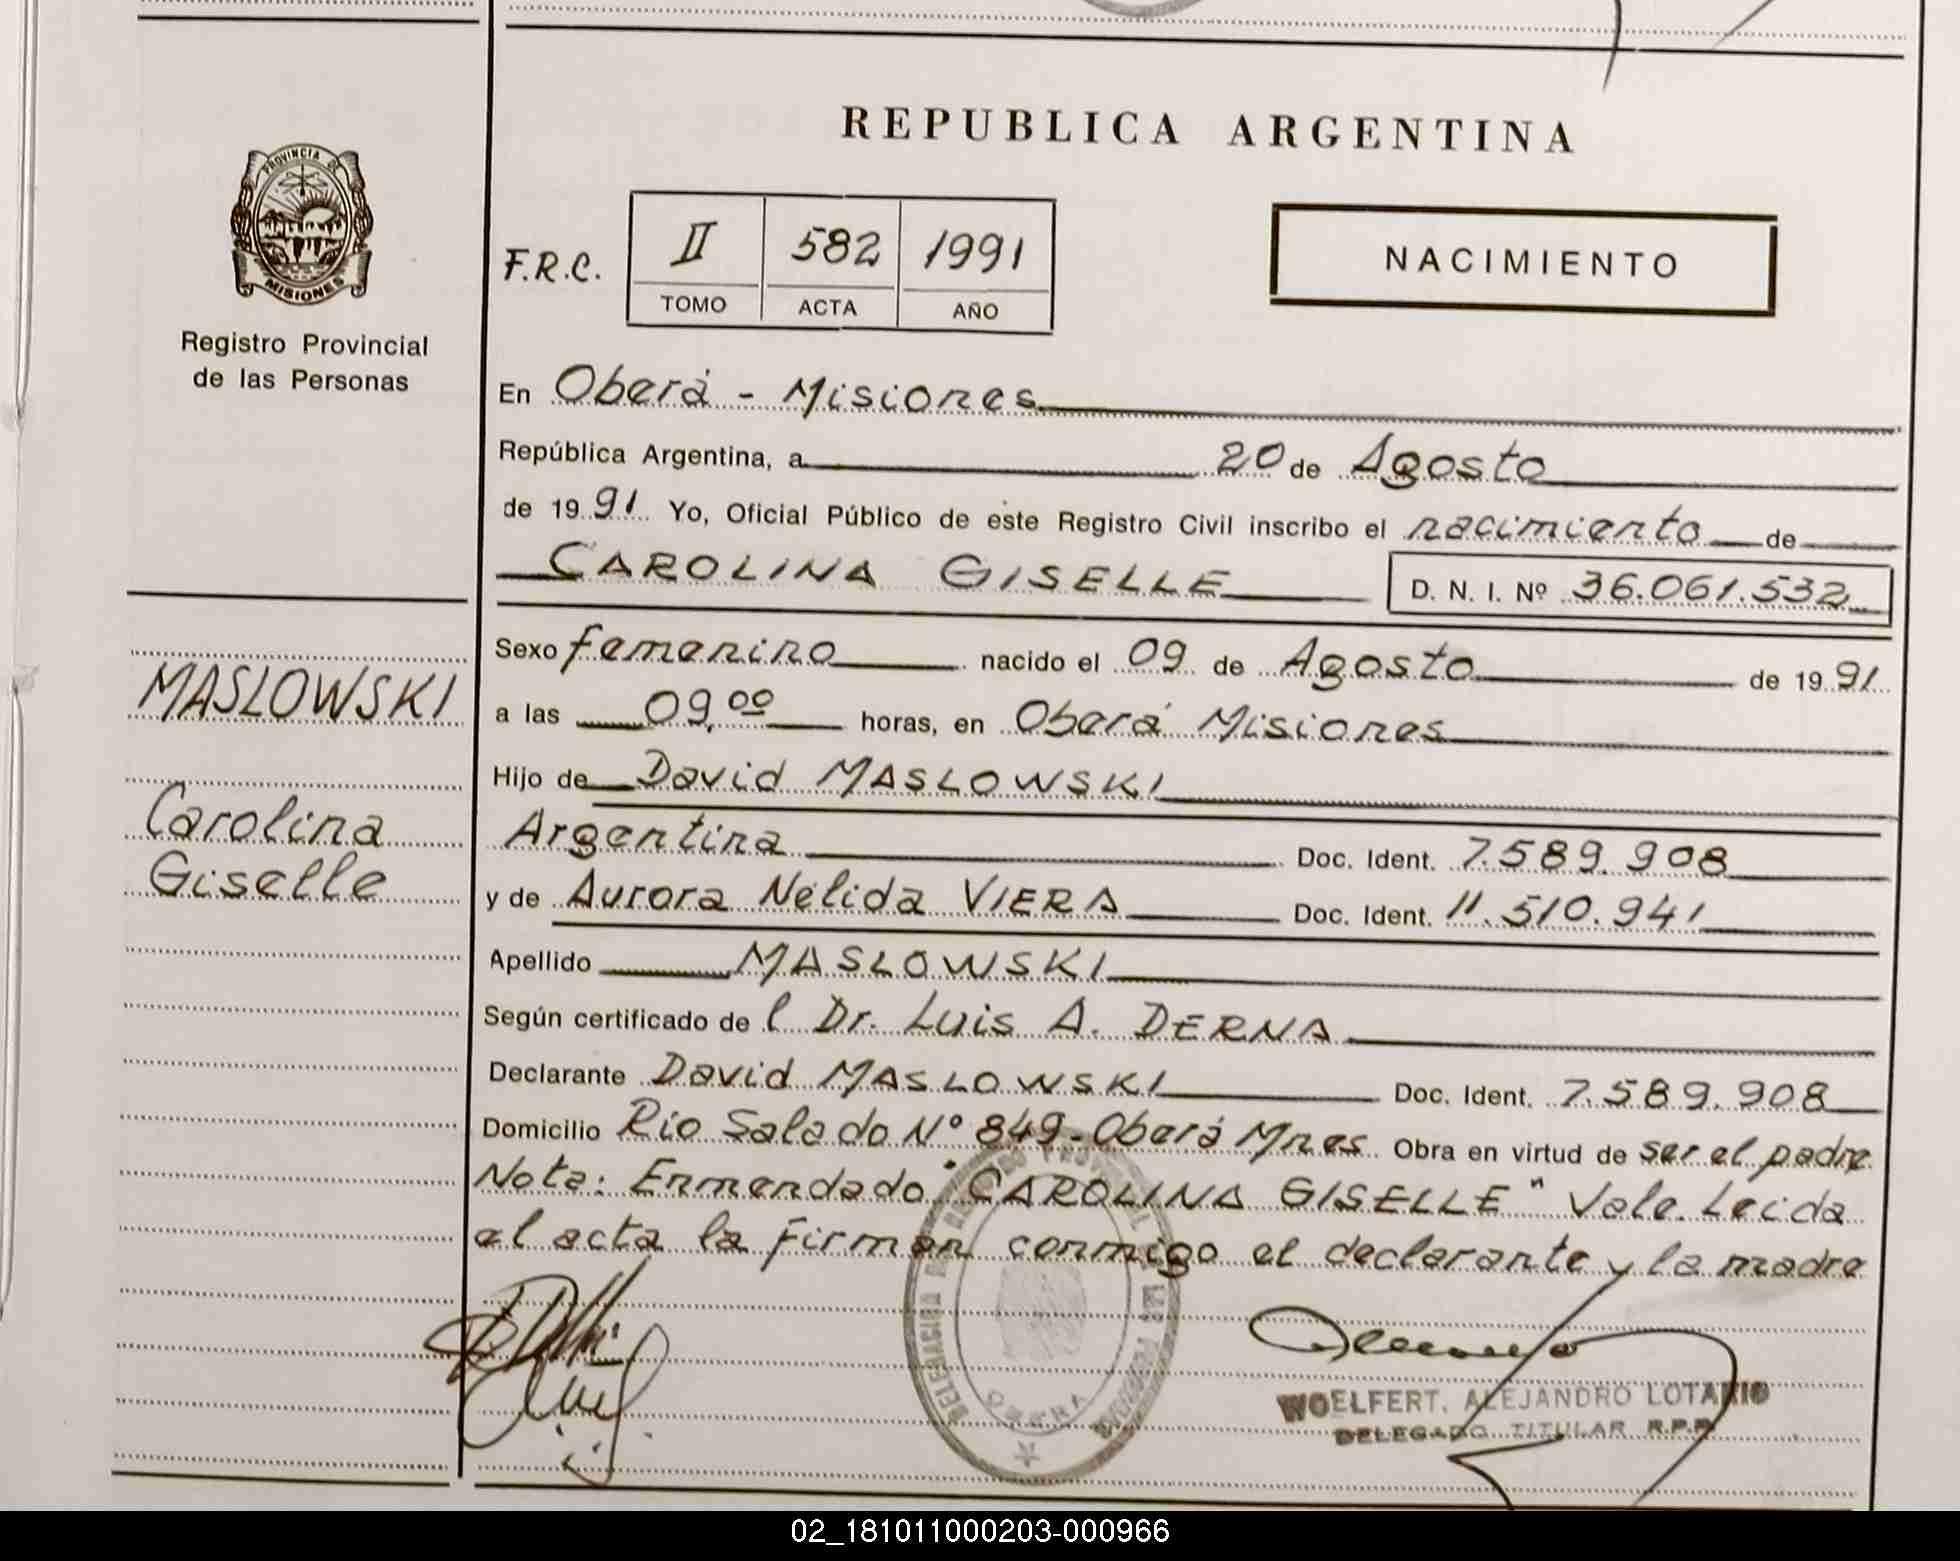 REPUBLICA ARGENTINA
PROVINCIA DE
MISIONES
Registro Provincial
de las Personas
F.R.C.
II 582 1991
TOMO ACTA AÑO
NACIMIENTO
En Oberá - Misiones
República Argentina, a 20 de Agosto
de 1991 Yo, Oficial Público de este Registro Civil inscribo el nacimiento de
CAROLINA GISELLE D. N. I. Nº 36.061.532
Sexo femenino nacido el 09 de Agosto de 1991
a las 09,00 horas, en Oberá Misiones
Hijo de David MASLOWSKI
Argentina Doc. Ident. 7.589.908
y de Aurora Nélida VIERA Doc. Ident. 11.510.941
Apellido MASLOWSKI
Según certificado de l Dr. Luis A. DERNA
Declarante David MASLOWSKI Doc. Ident. 7.589.908
Domicilio Rio Salado Nº 849-Oberá Mnes Obra en virtud de ser el padre
Nota: Enmendado "CAROLINA GISELLE" Vale. Leida
el acta la firman conmigo el declarante y la madre
MASLOWSKI
Carolina
Giselle
OBERA
WOELFERT, ALEJANDRO LOTARIO
DELEGADO TITULAR R.P.P.
02_181011000203-000966